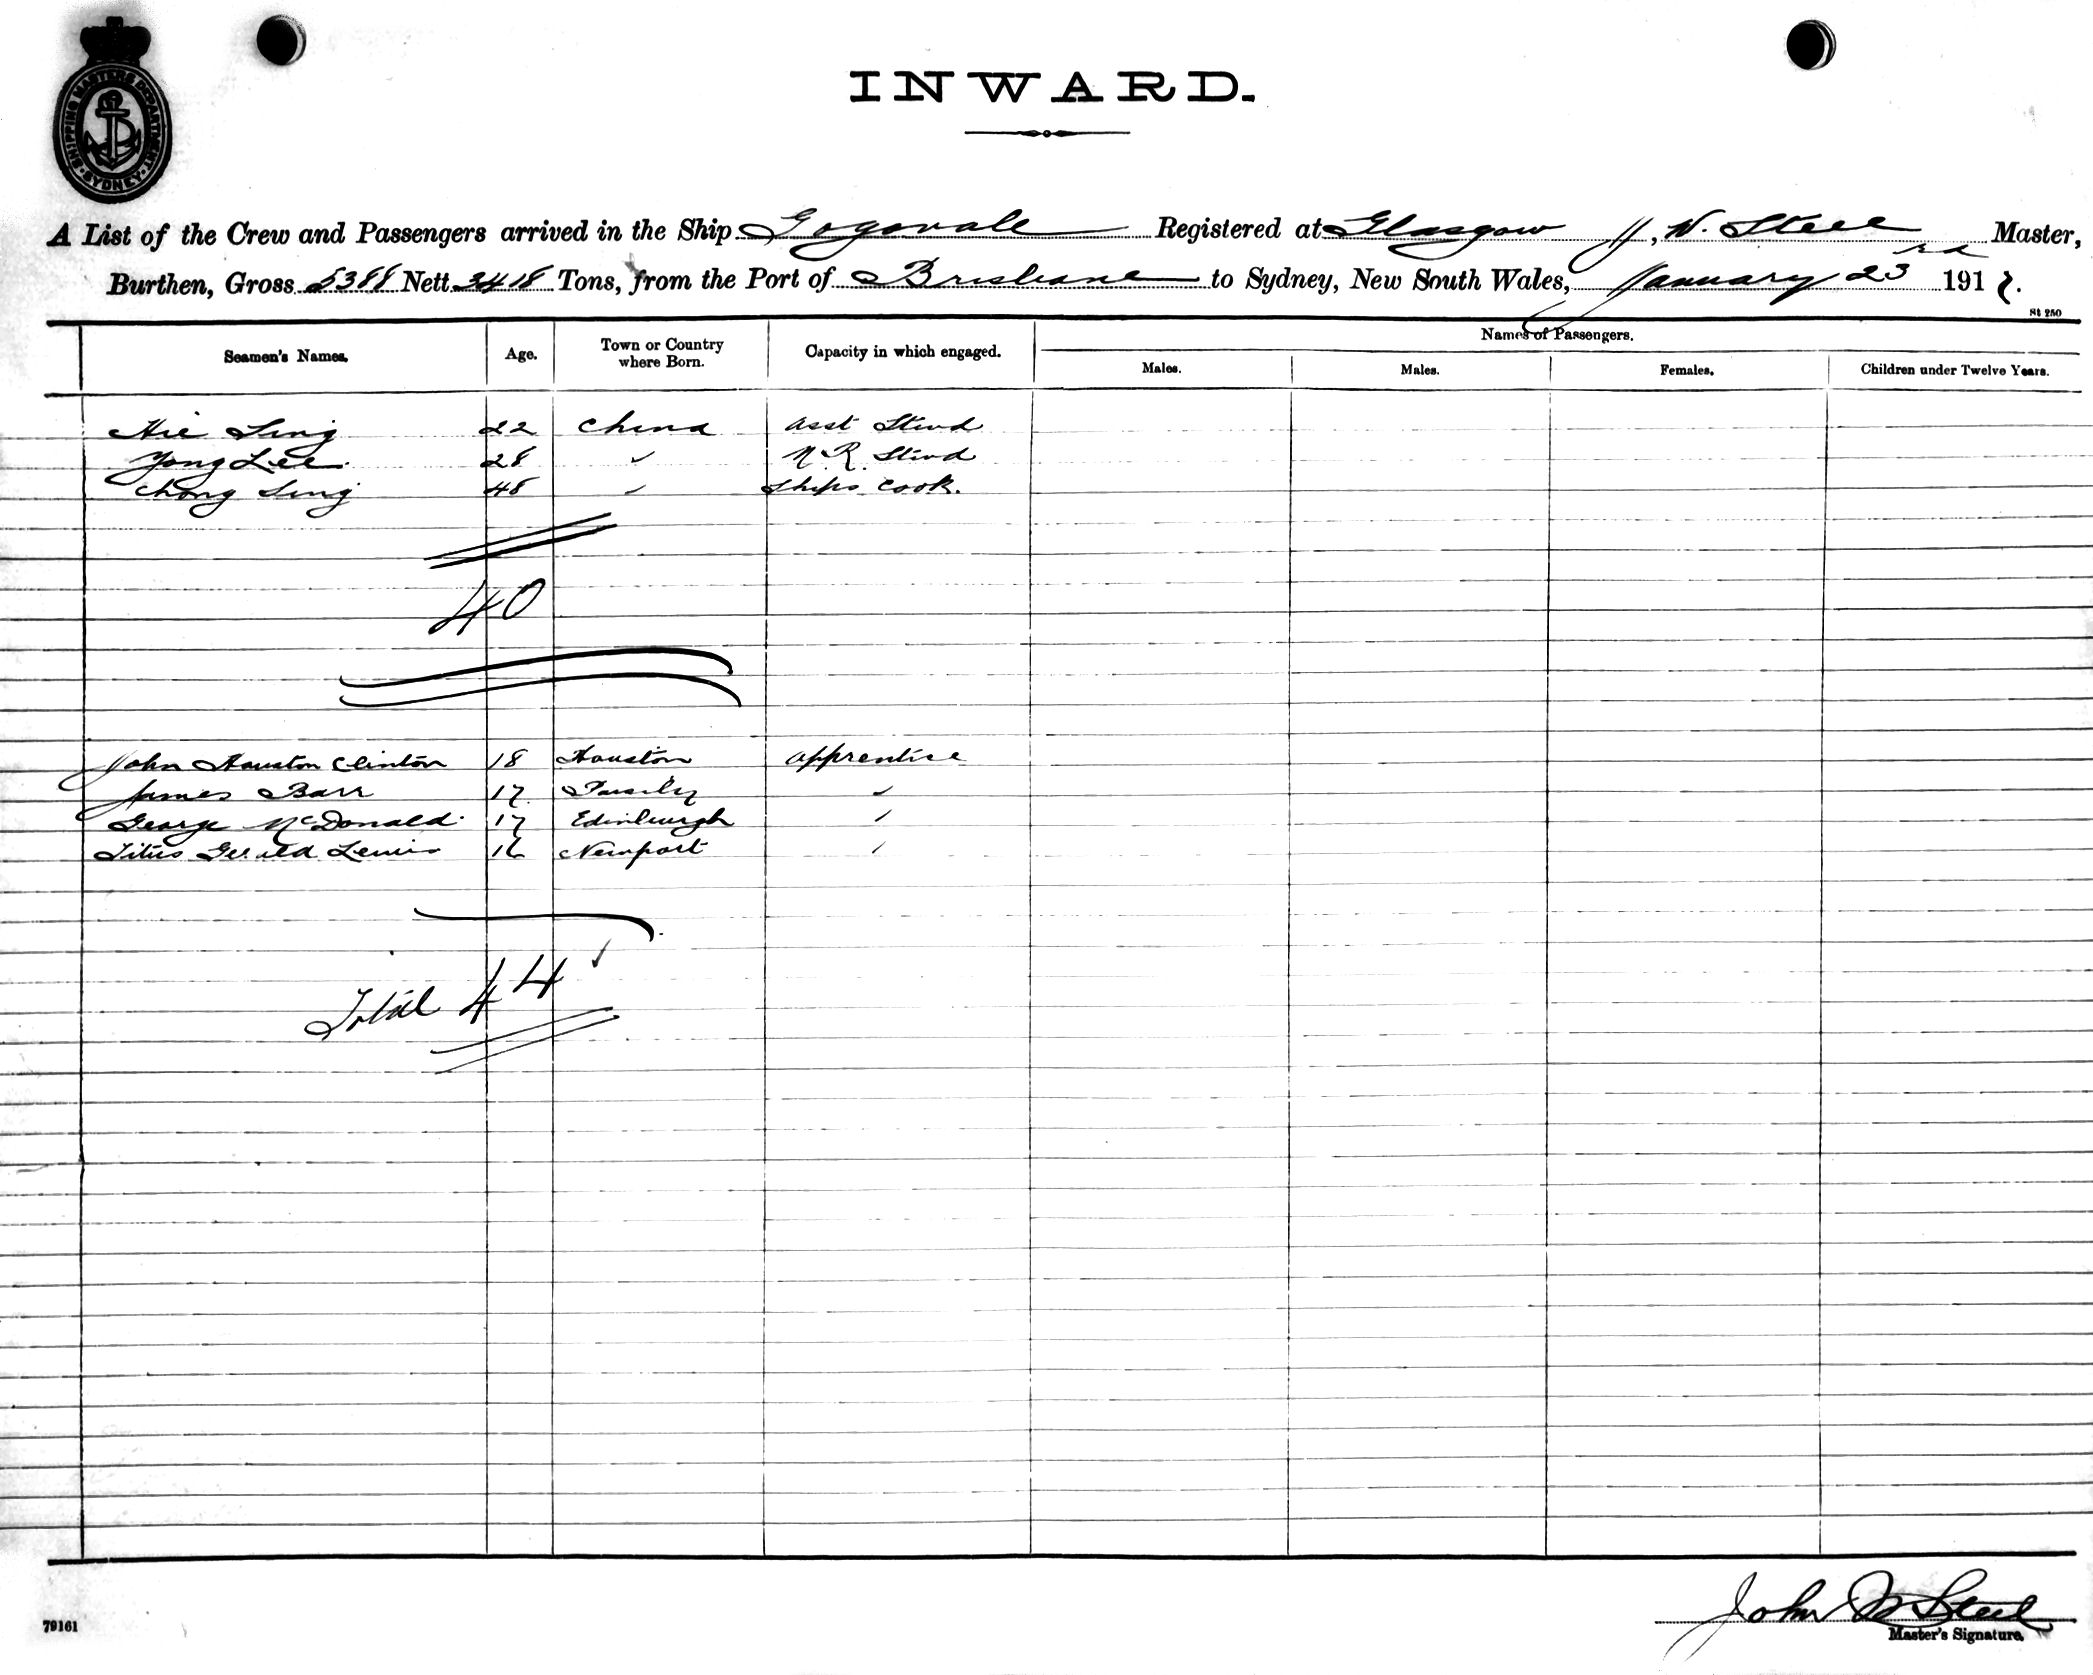 SHIPPING MASTERS DEPARTMENT
SYDNEY
INWARD.
A List of the Crew and Passengers arrived in the Ship Gogovale Registered at Glasgow J. W. Steel Master,
Burthen, Gross 5388 Nett 3418 Tons, from the Port of Brisbane to Sydney, New South Wales, January 23rd 191
St 250
Seamen's Names. Age. Town or Country where Born. Capacity in which engaged. Names of Passengers.
Males. Males. Females. Children under Twelve Years.
Hie Sing 22 China Asst Stwd
Yong Lee 28 " Stwd
Chong Sing 48 " Ships Cook.
40
John Houston Clinton 18 Houston Apprentice
James Barr 17 "
George McDonald 17 Edinburgh "
Titus Gerald Lewis 16 Newport "
Total 44 ✓
John W Steel
Master's Signature.
79161